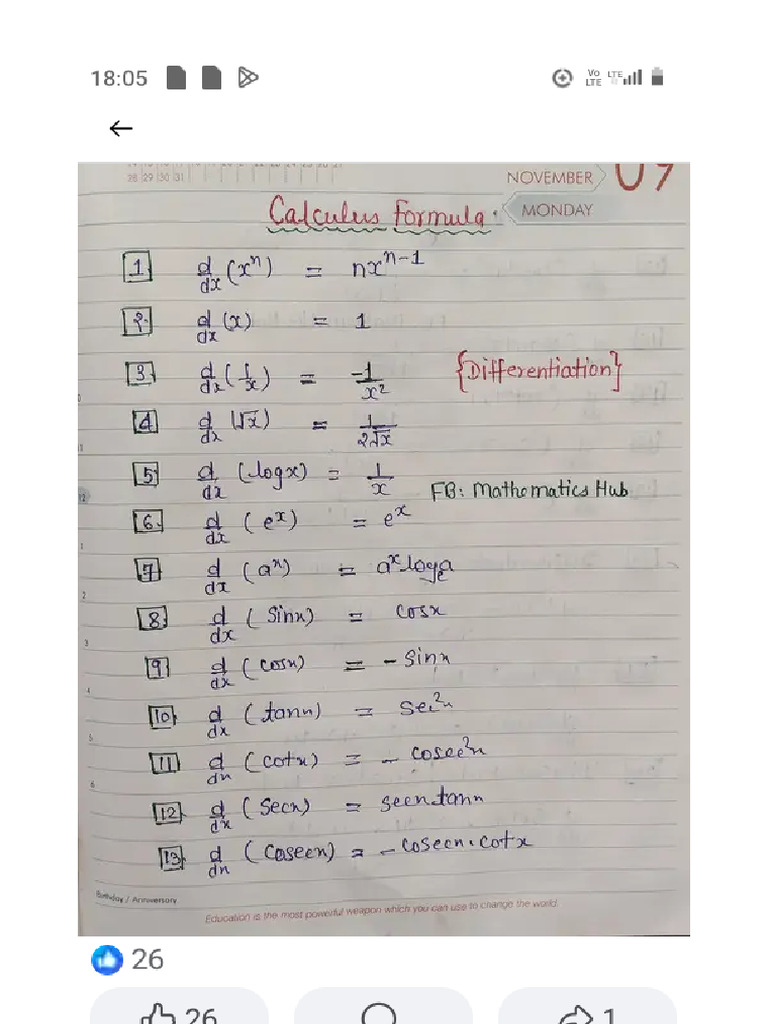 18:05
Vo LTE LTE
28 29 30 31
NOVEMBER 09
MONDAY
Calculus Formula.
1 d/dx (xⁿ) = nxⁿ⁻¹
2. d/dx (x) = 1
3 d/dx (1/x) = -1/x²
{Differentiation}
4 d/dx (√x) = 1/2√x
5 d/dx (logx) = 1/x
FB: Mathematics Hub
6. d/dx (eˣ) = eˣ
7 d/dx (aˣ) = aˣ logₑa
8 d/dx (sinx) = cosx
9 d/dx (cosx) = - sinx
10 d/dx (tanx) = sec²x
11 d/dx (cotx) = - cosec²x
12 d/dx (secx) = secx.tanx
13 d/dx (cosecx) = - cosecx.cotx
Birthday / Anniversary
Education is the most powerful weapon which you can use to change the world.
26
26
1